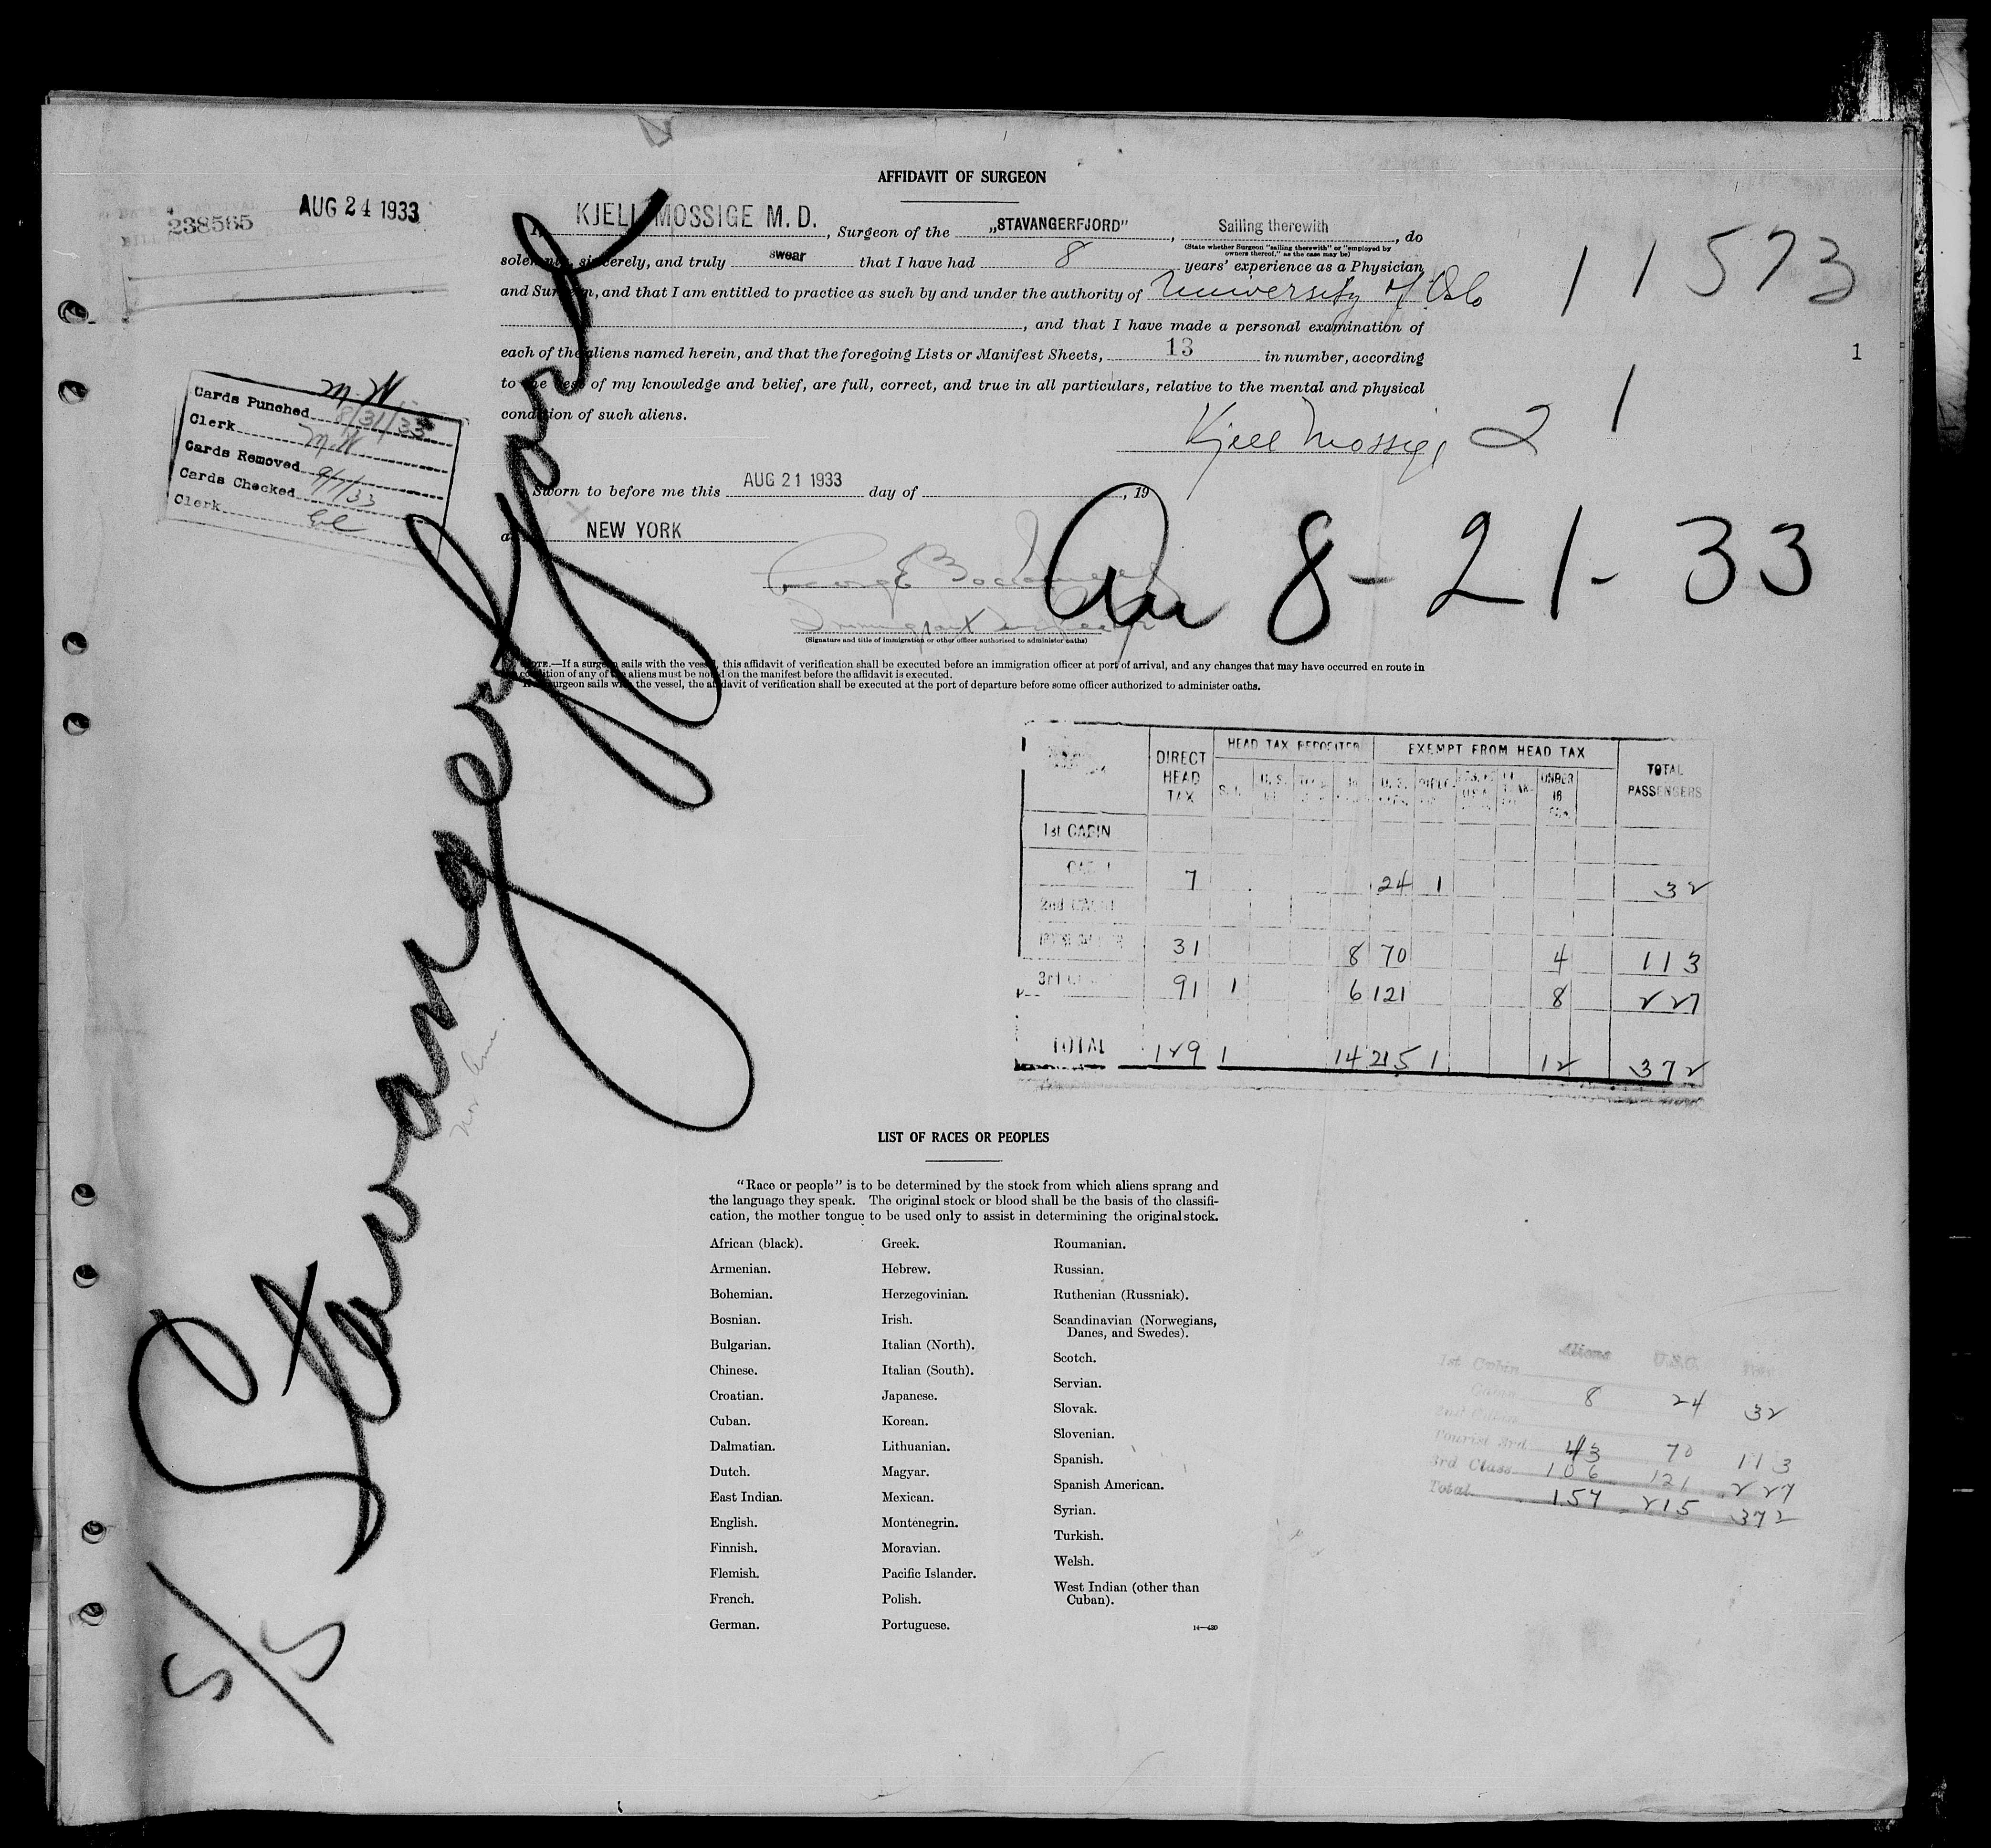 AFFIDAVIT OF SURGEON
238565
AUG 24 1933
I, KJELL MOSSIGE M. D., Surgeon of the „STAVANGERFJORD”, Sailing therewith, do
(State whether Surgeon "sailing therewith" or "employed by
owners thereof," as the case may be)
solemnly, sincerely, and truly swear that I have had 8 years' experience as a Physician
and Surgeon, and that I am entitled to practice as such by and under the authority of University of Oslo
, and that I have made a personal examination of
each of the aliens named herein, and that the foregoing Lists or Manifest Sheets, 13 in number, according
to the best of my knowledge and belief, are full, correct, and true in all particulars, relative to the mental and physical
condition of such aliens.
Kjell Mossige
11573
1
2 1
Cards Punched M.W
Clerk 8/31/33
Cards Removed M.W
Cards Checked 9/1/33
Clerk
Sworn to before me this AUG 21 1933 day of , 19
at NEW YORK
George E
Immigrant Inspector
(Signature and title of immigration or other officer authorized to administer oaths)
Arr 8-21-33
NOTE.—If a surgeon sails with the vessel, this affidavit of verification shall be executed before an immigration officer at port of arrival, and any changes that may have occurred en route in
condition of any of the aliens must be noted on the manifest before the affidavit is executed.
If no surgeon sails with the vessel, the affidavit of verification shall be executed at the port of departure before some officer authorized to administer oaths.
S/S Stavangerfjord
Nor Am.
DIRECT HEAD TAX HEAD TAX DEPOSITED EXEMPT FROM HEAD TAX TOTAL PASSENGERS
S.I. U.S. U.S. UNDER 16
1st CABIN
CABIN 7 24 1 32
2nd CABIN
31 8 70 4 113
3rd 91 1 6 121 8 227
TOTAL 129 1 14 215 1 12 372
LIST OF RACES OR PEOPLES
"Race or people" is to be determined by the stock from which aliens sprang and
the language they speak. The original stock or blood shall be the basis of the classifi-
cation, the mother tongue to be used only to assist in determining the original stock.
African (black).
Armenian.
Bohemian.
Bosnian.
Bulgarian.
Chinese.
Croatian.
Cuban.
Dalmatian.
Dutch.
East Indian.
English.
Finnish.
Flemish.
French.
German.
Greek.
Hebrew.
Herzegovinian.
Irish.
Italian (North).
Italian (South).
Japanese.
Korean.
Lithuanian.
Magyar.
Mexican.
Montenegrin.
Moravian.
Pacific Islander.
Polish.
Portuguese.
Roumanian.
Russian.
Ruthenian (Russniak).
Scandinavian (Norwegians,
Danes, and Swedes).
Scotch.
Servian.
Slovak.
Slovenian.
Spanish.
Spanish American.
Syrian.
Turkish.
Welsh.
West Indian (other than
Cuban).
14—430
Aliens U.S.C.
1st Cabin
Cabin 8 24 32
2nd Cabin
Tourist 3rd 43 70 113
3rd Class 106 121 227
Total 157 215 372